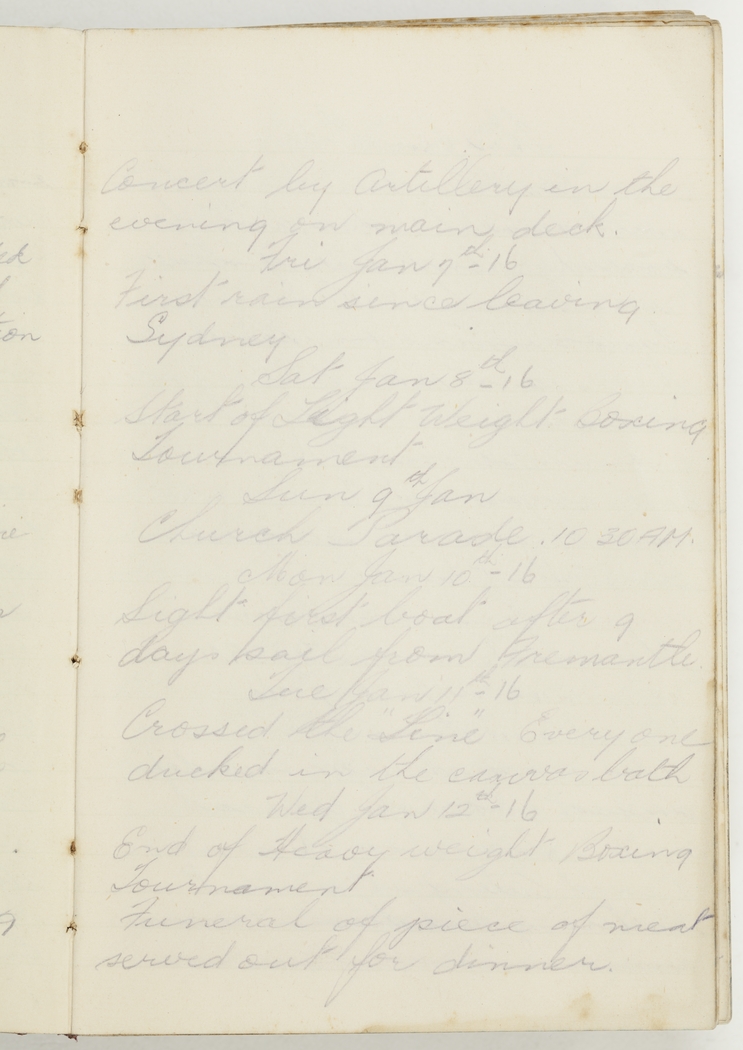 Concert by Artillery in the
evening on main deck.
Fri Jan 7th-16
First rain since leaving
Sydney
Sat Jan 8th-16
Start of Light Weight Boxing
Tournament
Sun 9th Jan
Church Parade. 10 30 AM.
Mon Jan 10th-16
Sight first boat after 9
days sail from Fremantle.
Tue Jan 11th-16
Crossed the "Line" Everyone
ducked in the canvas bath
Wed Jan 12th-16
End of Heavy weight Boxing
Tournament
Funeral of piece of meat
served out for dinner.